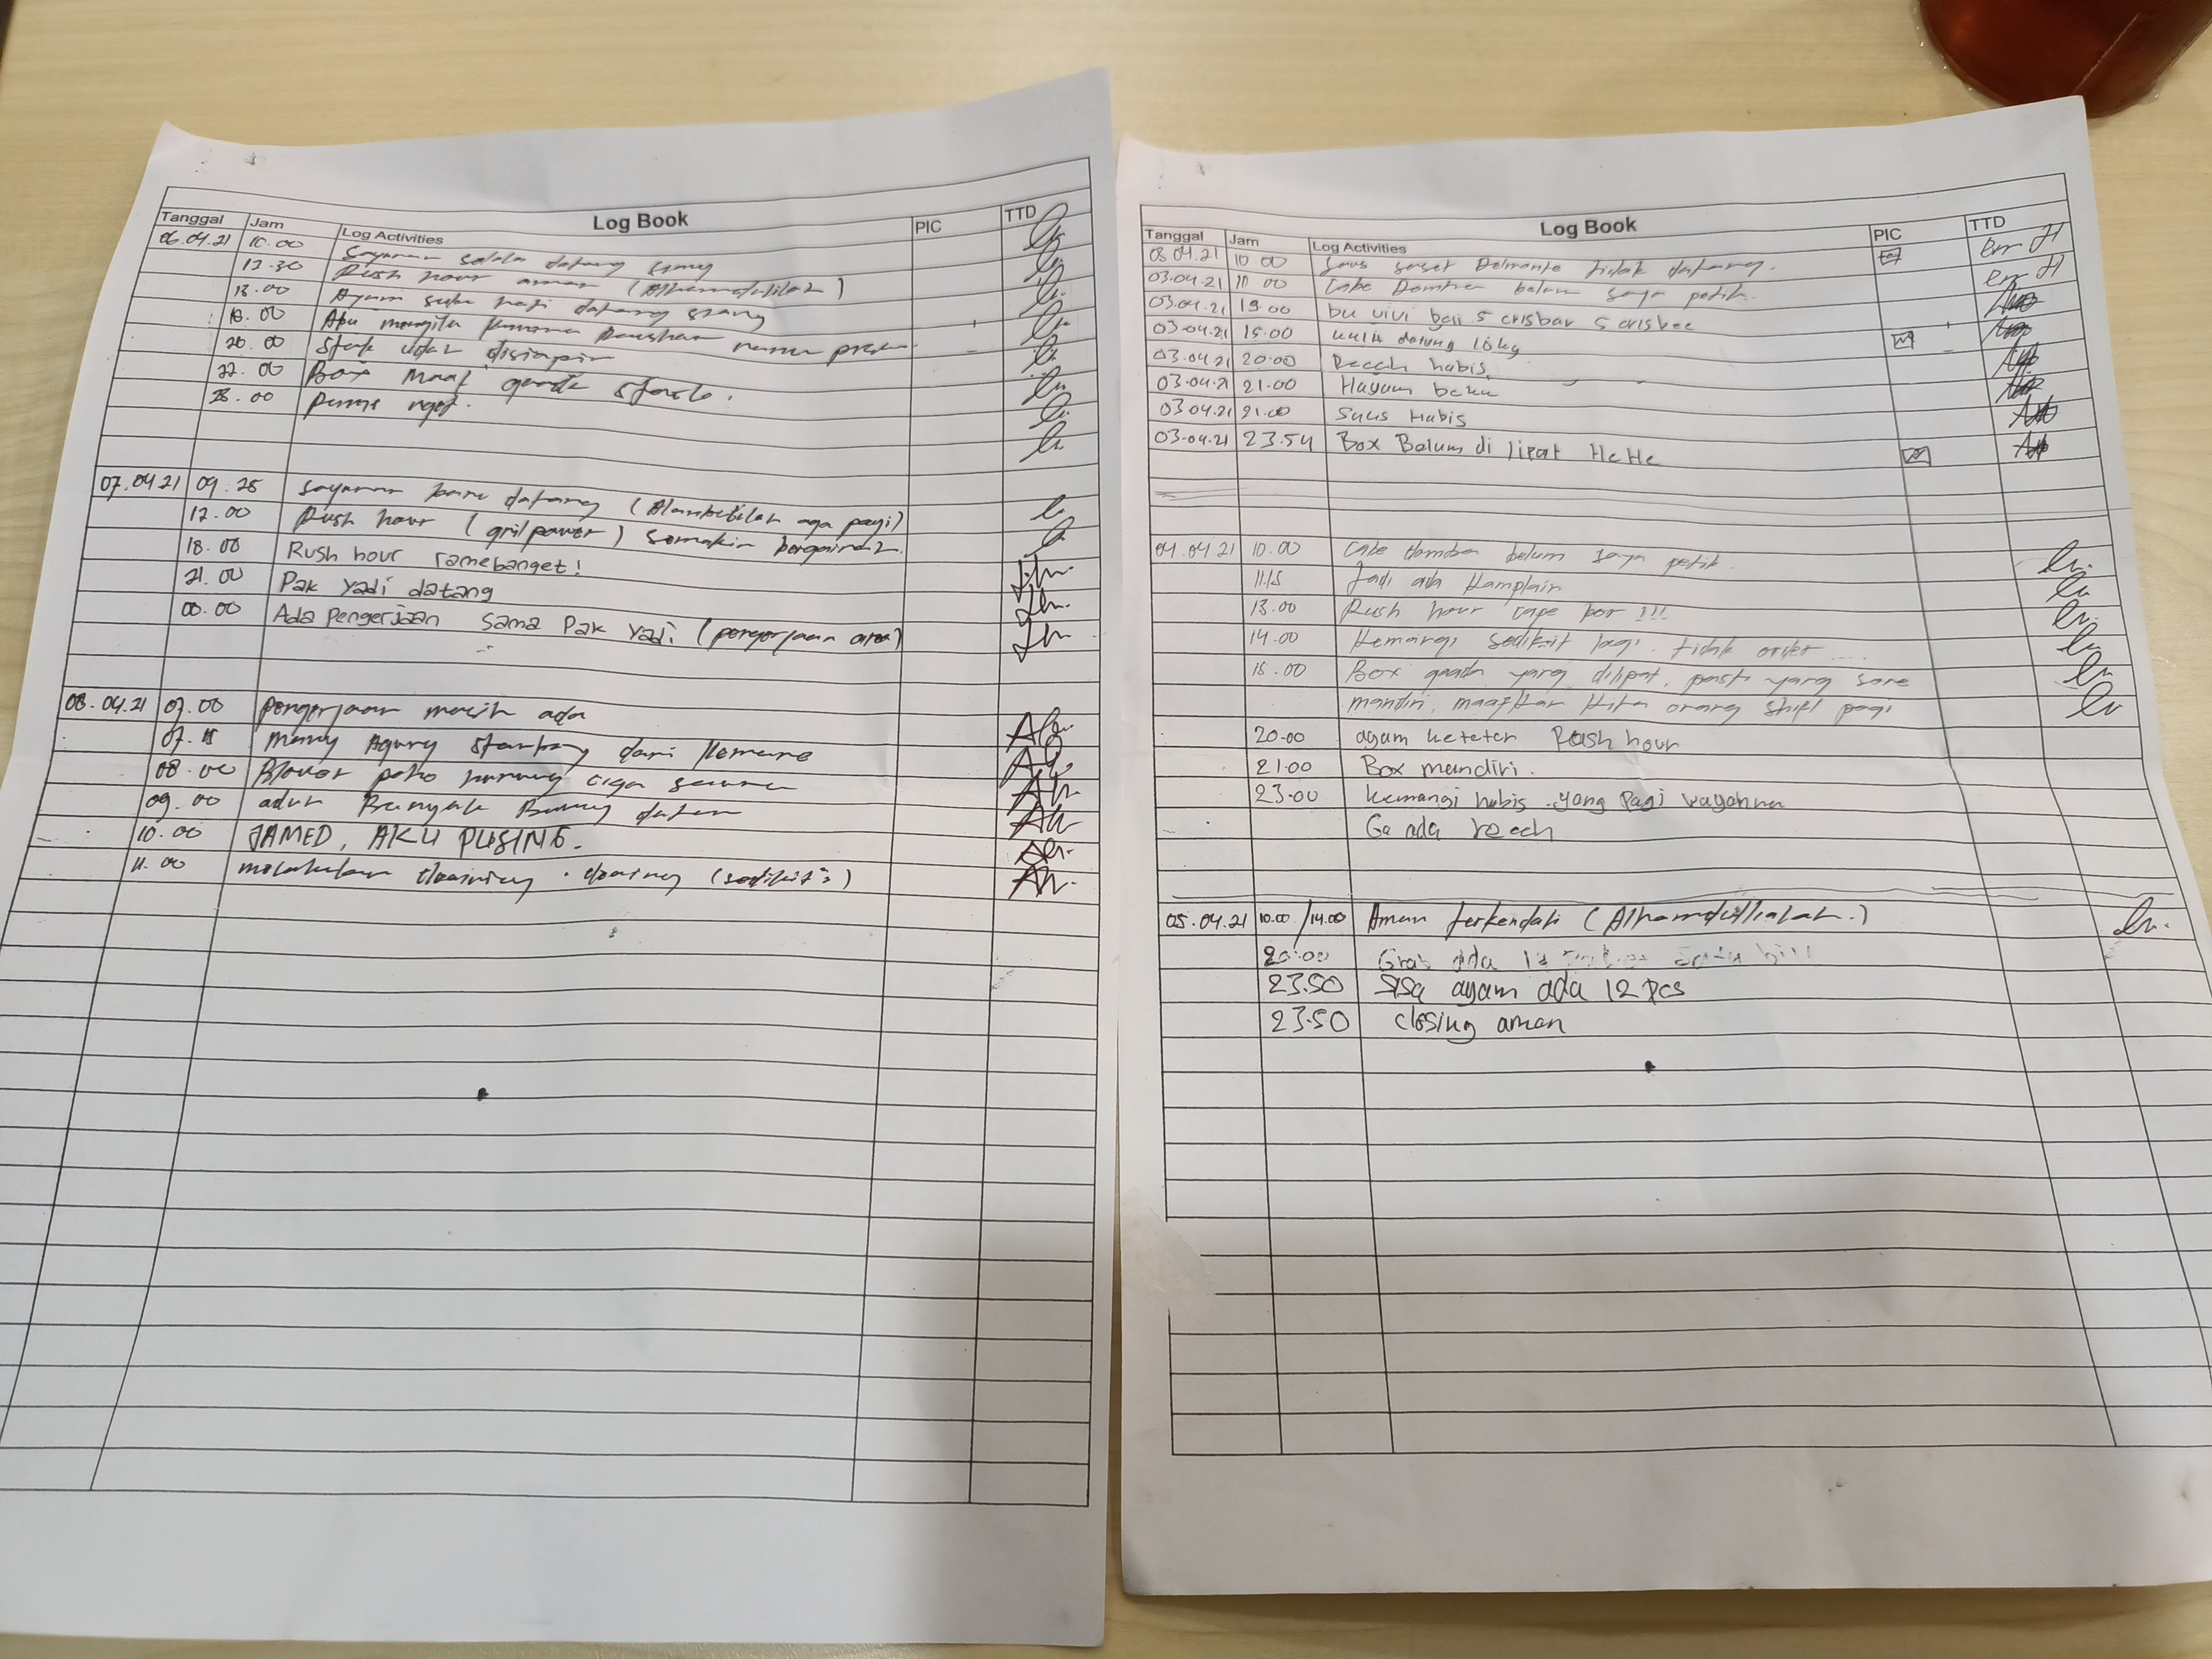 Log Book
Tanggal Jam Log Activities PIC TTD
06.04.21 10.00 Sayuran selalu datang siang
12.30 Rush hour aman (Alhamdulilah)
18.00 Ayam suka hati datang siang
18.00 Abu mengila
20.00 Stok udah disiapin
22.00 Box Maaf
23.00
07.04.21 09.25 Sayuran baru datang (Alambulilah aga pagi)
12.00 Rush hour (grilpower) semakin bergairah
18.00 Rush hour rame banget!
21.00 Pak Yadi datang
00.00 Ada Pengerjaan sama Pak Yadi (pengerjaan area)
08.04.21 07.00 pengerjaan masih ada
07.15 Mang Agung dari Kemare
08.00 Blower
09.00 Banyak Barang datan
10.00 JAMED, AKU PUSING.
11.00 melakukan training - training (sedikit2)
Log Book
Tanggal Jam Log Activities PIC TTD
03.04.21 10 00 Saus saset Delmonte tidak datang.
03.04.21 10 00 Cabe Domba belum saya petik.
03.04.21 19 00 bu vivi beli 5 crisbar 5 crisbee
03.04.21 15.00 kulit datang 10kg
03.04.21 20:00 Receh habis
03.04.21 21.00 Hayam beku
03.04.21 21.00 Suus Habis
03.04.21 23.54 Box Belum di lipat HeHe
04.04.21 10.00 Cabe domba belum saya petik.
11.15 Jadi ada Komplain
13.00 Rush hour cape bor !!!
14.00 Kemangi sedikit lagi. tidak order ....
15.00 Box gaada yang dilipat, pasti yang sore
mandiri, maafkan kita orang shift pagi
20.00 ayam keteter Rush hour
21.00 Box mandiri.
23.00 kemangi habis yang Pagi wayahna
Ga ada receh
05.04.21 10.00/14.00 Aman terkendali (Alhamdulliialah.)
20:00 Grab ada 12 satu bill
23.50 Sisa ayam ada 12 pcs
23.50 closing aman